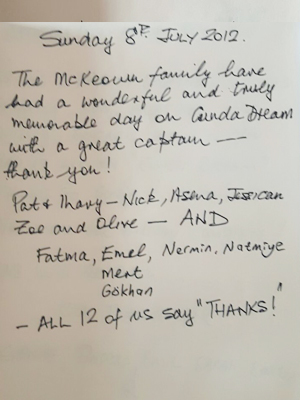 Sunday 8th July 2012.
The McKeown family have
had a wonderful and truly
memorable day on Cunda Dream
with a great captain —
thank you!
Pat & Mary – Nick, Asena, Jessican
Zoe and Olive — AND
Fatma, Emel, Nermin, Natmiye
Mert
Gökhan
– ALL 12 of us say "THANKS!"